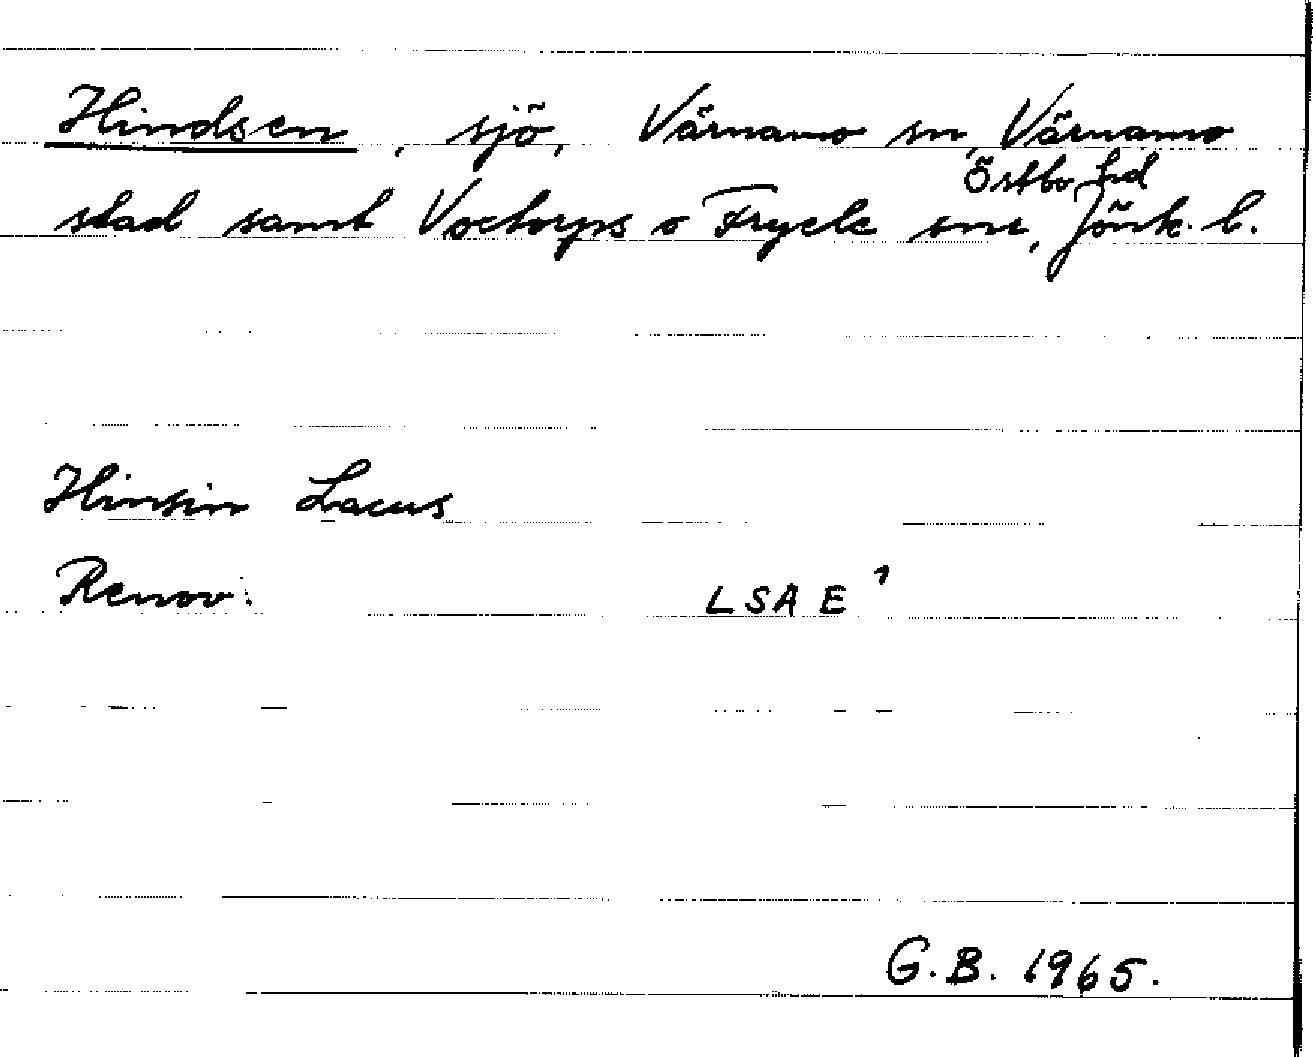 Hindsen, sjö, Värnamo sn, Värnamo
Östbo hd
stad samt Voxtorps o Fryele snr, Jönk. l.
Hinsin Lacus
Renov.
LSA E 1
G.B. 1965.